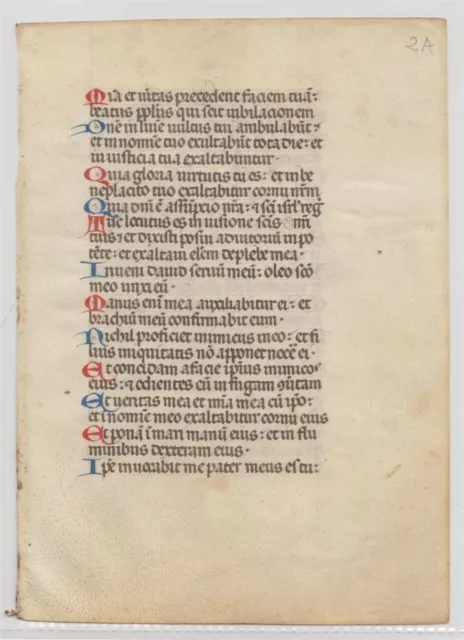 2A
Mīa et ūitas precedent faciem tuā:
beatus pplūs qui scit iubilacionem
Dn̄e in lum̄e uultus tui ambulabūt:
et in nomīe tuo exultabūt tota die: et
in iusticia tua exaltabuntur.
Quia gloria uirtutis tu es: et in be
neplacito tuo exaltabitur cornu nr̄m
Quia dn̄i ē assūpcio nr̄a: & sc̄i isrl̄ reḡ
Tūc locutus es in uisione sc̄is
tuis et dixisti posui adiutoriū in po
tēte: et exaltaui elc̄m de plebe mea.
Inueni dauid seruū meū: oleo sc̄o
meo unxi eū.
Manus enī mea auxiliabitur ei: et
brachiū meū confirmabit eum.
Nichil proficiet inimicus in eo: et fi
lius iniquitatis nō apponet nocē ei.
Et concidam a facie ipīus inimicos
eius: & odientes eū in fugam ūtam
Et ueritas mea et mīa mea cū ip̄o:
et ī nomīe meo exaltabitur cornu eius
Et ponā ī mari manū eius: et in flu
minibus dexteram eius.
Ip̄e inuocabit me pater meus es tu: